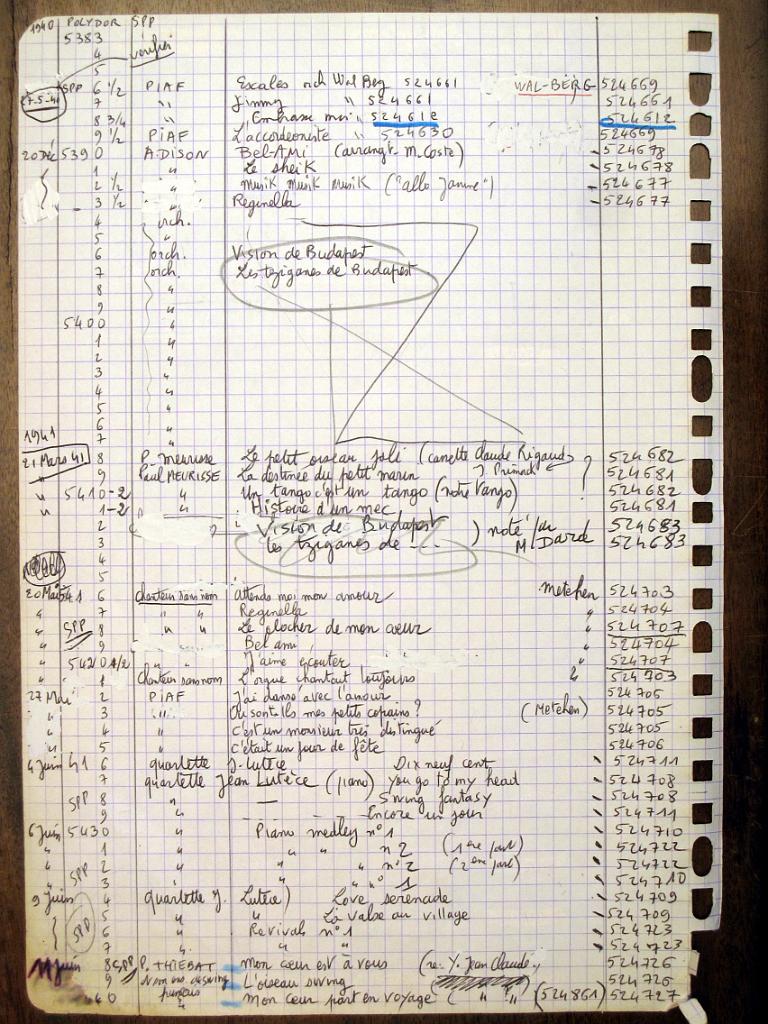 1940 POLYDOR SPP
5383
4 vérifier
5
SPP 6 1/2 PIAF Escales rich Wal Berg 524661 WAL-BERG 524669
27-5-40 7 " Jimmy " 524661 524661
8 3/4 " Embrasse moi " 524612 524612
9 1/2 PIAF L'accordéoniste " 524630 524669
20 Déc 5390 A. DISON Bel-Ami (arrangt M. Coste) 524678
1 " Le sheik 524678
2 1/2 " musik musik musik ("allo Janine") 524677
3 1/2 " Reginella 524677
4 orch.
5 "
6 orch. Vision de Budapest
7 orch. Les tziganes de Budapest
8 "
9 "
5400 "
1 "
2 "
3 "
4 "
5 "
6 "
1941 7 "
21 Mars 41 8 P. Meurisse Le petit oiseau joli (canette Claude Rigaud) 524682
" 9 Paul MEURISSE La destinée du petit marin ? 524681
" 5410-2 " Un tango c'est un tango (notre tango) 524682
" 1-2 " Histoire d'un mec 524681
2 ? Vision de Budapest ) noté par 524683
3 les tziganes de --- ) M. Dard 524683
4
5
20 Mai 41 6 Chanteur sans nom Attends moi mon amour Metchen 524703
" 7 " " Reginella " 524704
" SPP 8 " " Le clocher de mon cœur " 524707
" 9 Bel ami " 524704
" 5420 1/2 " " J'aime écouter " 524707
" 1 Chanteur sans nom L'orgue chantait toujours " 524703
27 Mai 2 PIAF J'ai dansé avec l'amour 524706
" 3 " Où sont-ils mes petits copains? (Metchen) 524705
" 4 " c'est un monsieur très distingué 524705
" 5 " c'était un jour de fête 524706
4 Juin 41 6 quartette J. Lutèce Dix neuf cent 524711
7 quartette Jean Lutèce (piano) you go to my head 524708
SPP 8 " — Swing fantasy 524708
9 " — Encore un jour 524711
6 Juin 5430 " Piano medley n° 1 524710
" 1 " " " n° 2 (1ère part) 524722
" SPP 2 " " " n° 2 (2ème part) 524722
3 " " " n° 1 524710
9 Juin 4 quartette J. Lutèce) Love serenade 524709
5 " " La valse au village 524709
SPP 6 " Revivals n° 1 524723
7 " " " 524723
11 Juin 8 SPP P. THIEBAT Mon cœur est à vous (re: Y. Jean Claude) 524726
9 L'oiseau swing 524726
40 " Mon cœur part en voyage ( " " ) (524861) 524727